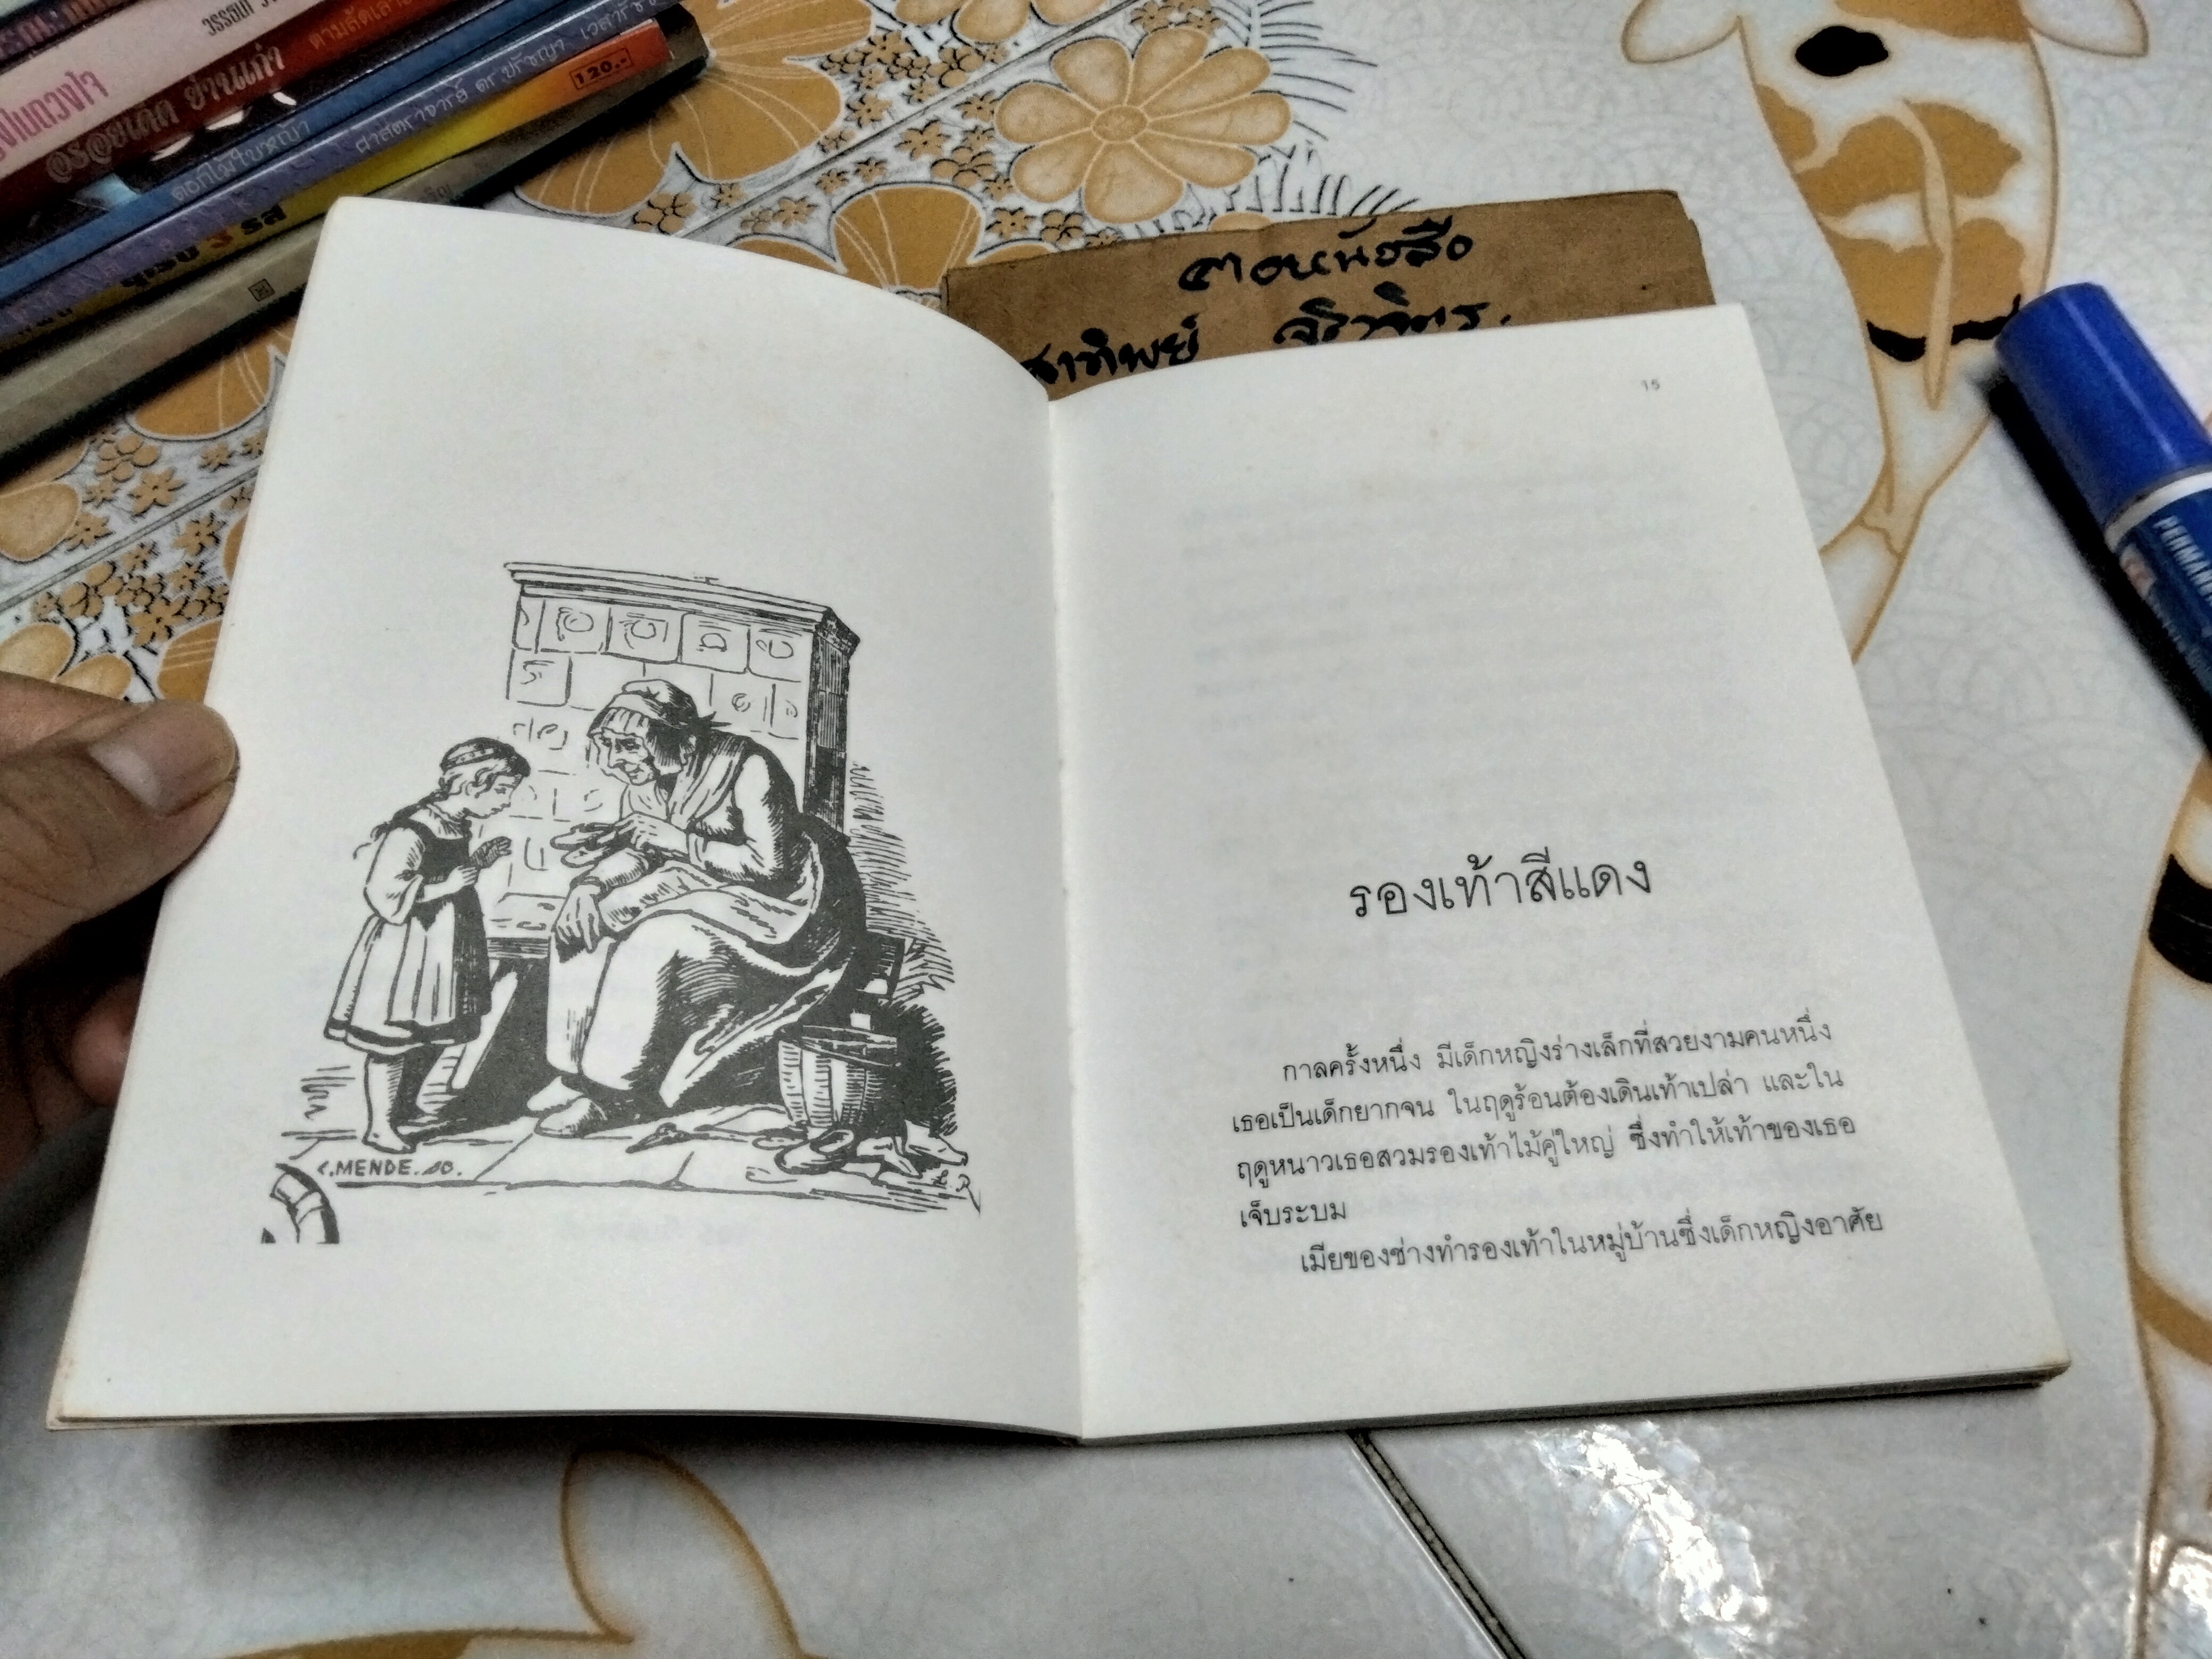 อร่อยเด็ด ย่านเก่า
ดอกไม้ใบหญ้า
ศาสตราจารย์ ดร ปรัชญา เวสารัชช์
120.-
3 รส
15
รองเท้าสีแดง
กาลครั้งหนึ่ง มีเด็กหญิงร่างเล็กที่สวยงามคนหนึ่ง
เธอเป็นเด็กยากจน ในฤดูร้อนต้องเดินเท้าเปล่า และใน
ฤดูหนาวเธอสวมรองเท้าไม้คู่ใหญ่ ซึ่งทำให้เท้าของเธอ
เจ็บระบม
เมียของช่างทำรองเท้าในหมู่บ้านซึ่งเด็กหญิงอาศัย
C.MENDE.